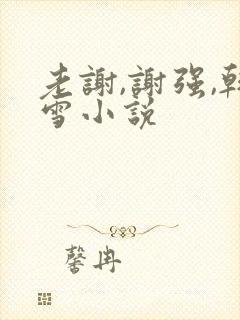 老謝,謝强,韩
雪小説
馨冉